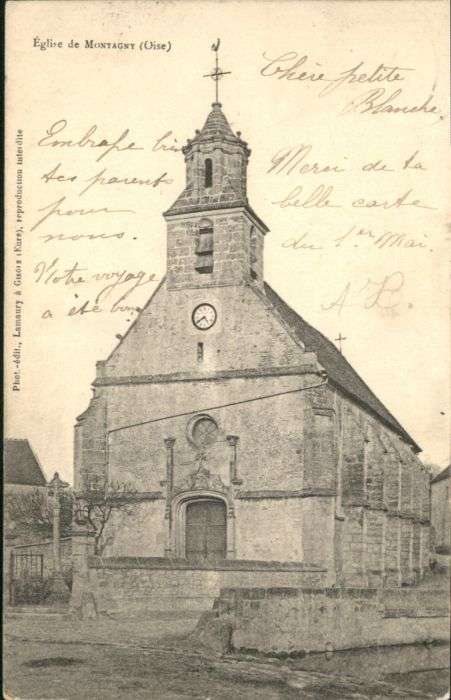 Église de MONTAGNY (Oise)
Chère petite
Blanche.
Merci de ta
belle carte
du 1er Mai.
A L.
Embrasse bien
tes parents
pour
nous.
Notre voyage
a été bon
Phot.-édit., Lamaury à GISORS (Eure), reproduction interdite